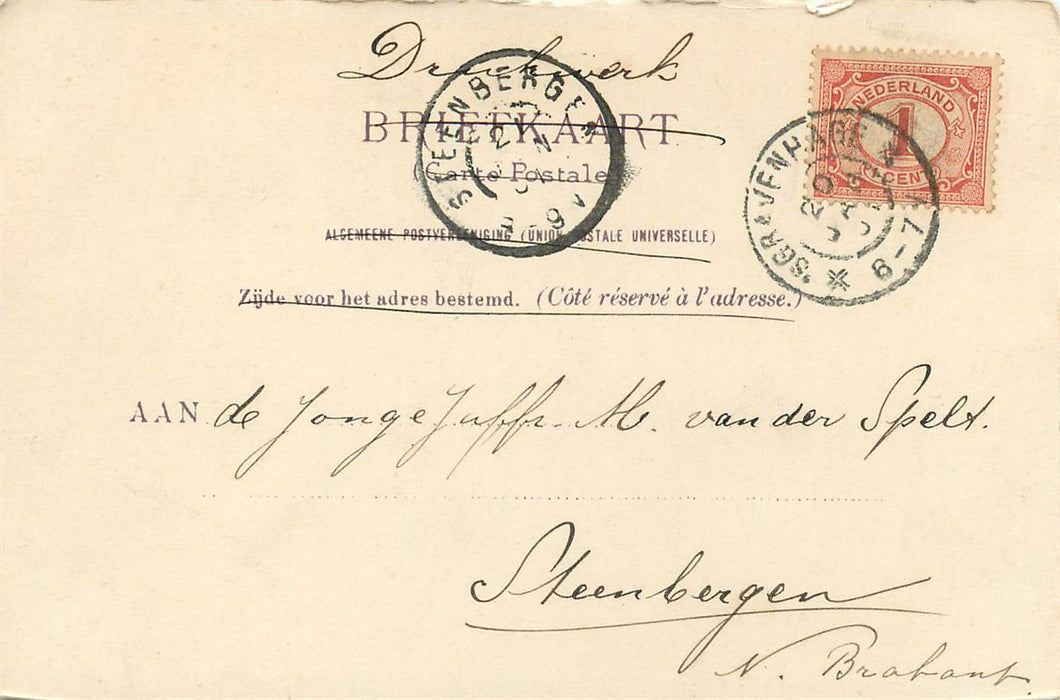 Drukwerk
BRIEFKAART
(Carte Postale)
ALGEMEENE POSTVEREENIGING (UNION POSTALE UNIVERSELLE)
Zijde voor het adres bestemd. (Côté réservé à l'adresse.)
NEDERLAND
1
CENT
STEENBERGEN
'SGRAVENHAGE
6-7
AAN de Jonge Juffr. M. van der Spelt.
Steenbergen
N. Brabant